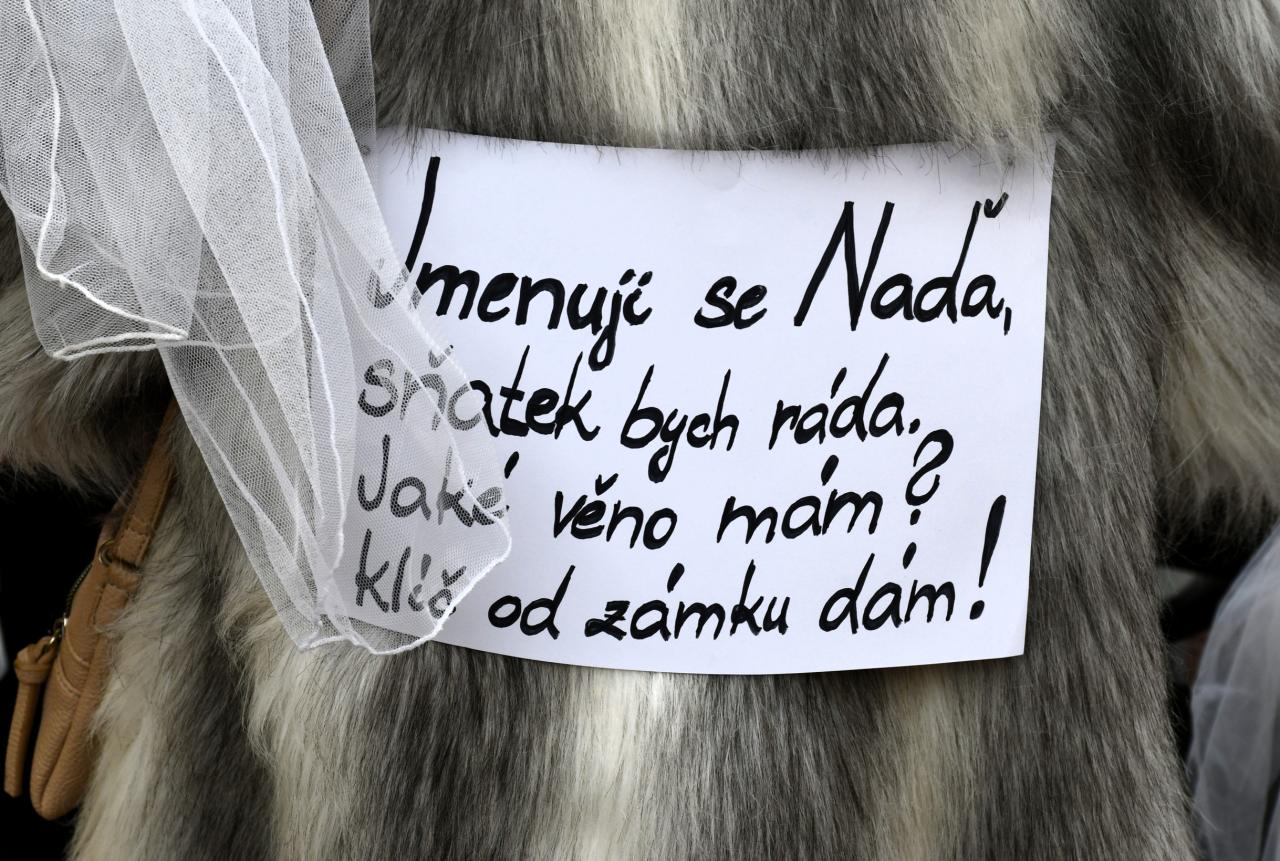 Jmenuji se Naďa,
sňatek bych ráda.
Jaké věno mám?
klíč od zámku dám!